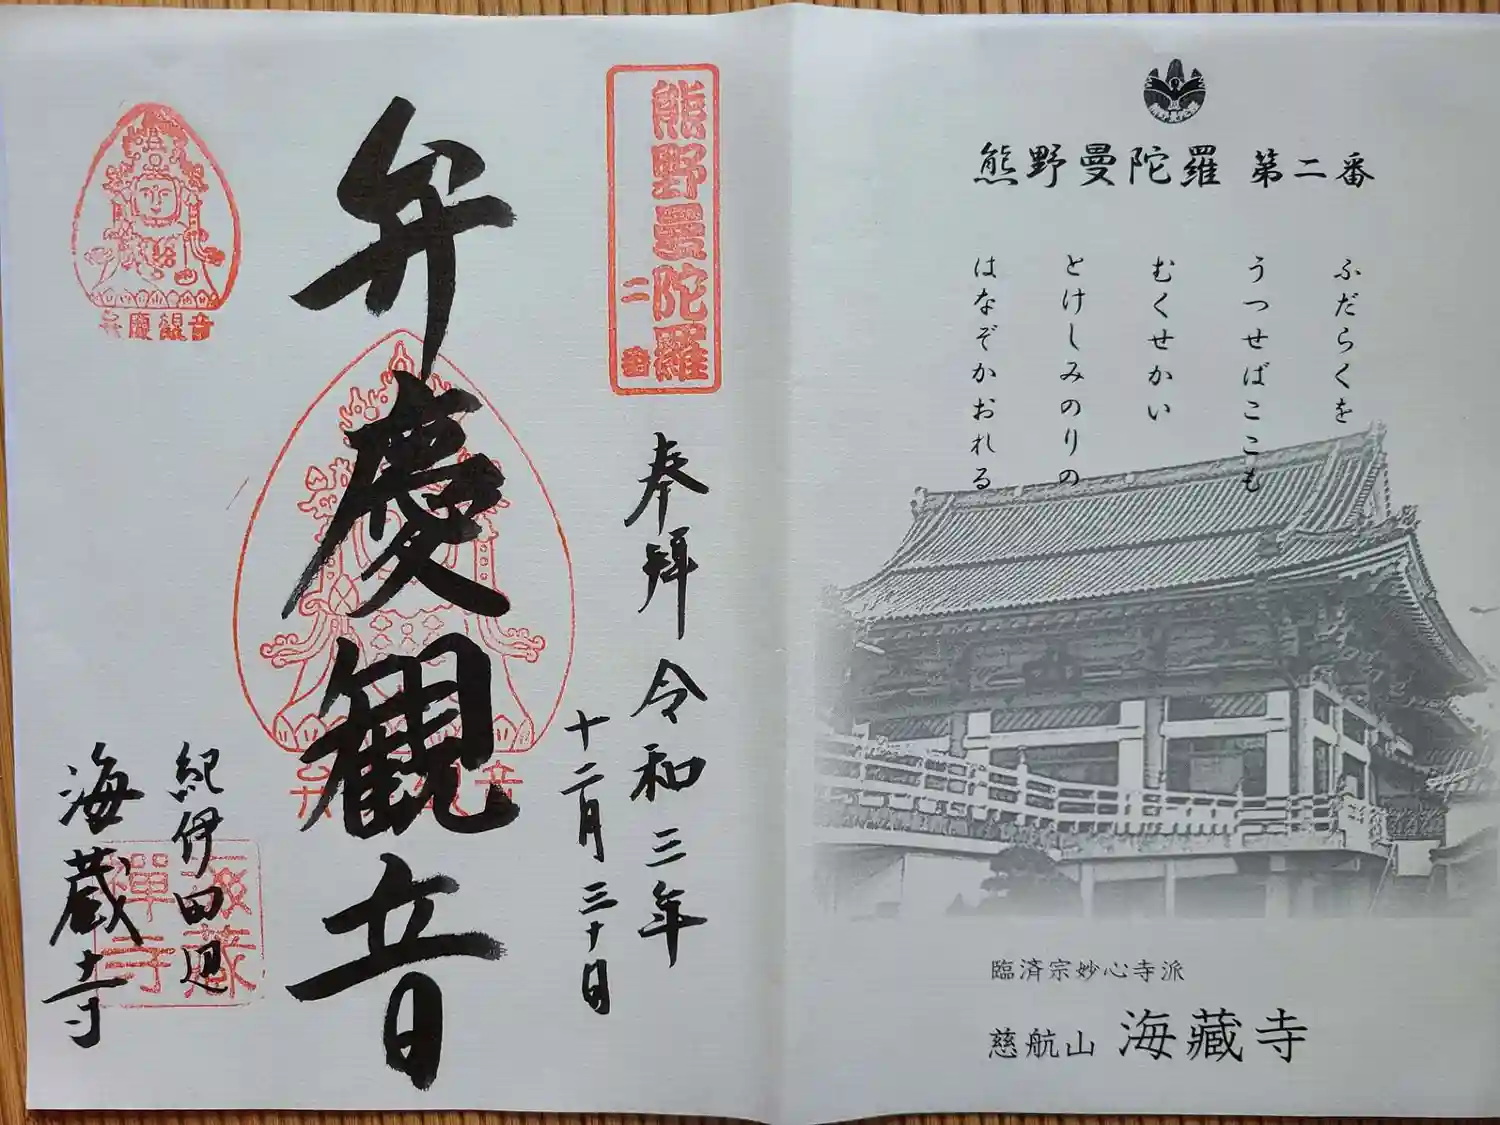 熊野曼陀羅 第二番
ふだらくを
うつせばここも
むくせかい
とけしみのりの
はなぞかおれる
臨済宗妙心寺派
慈航山 海藏寺
熊野曼陀羅
二番
奉拝 令和三年
十二月三十日
弁慶観音
弁慶観音
紀伊田辺
海蔵寺
海蔵禅寺